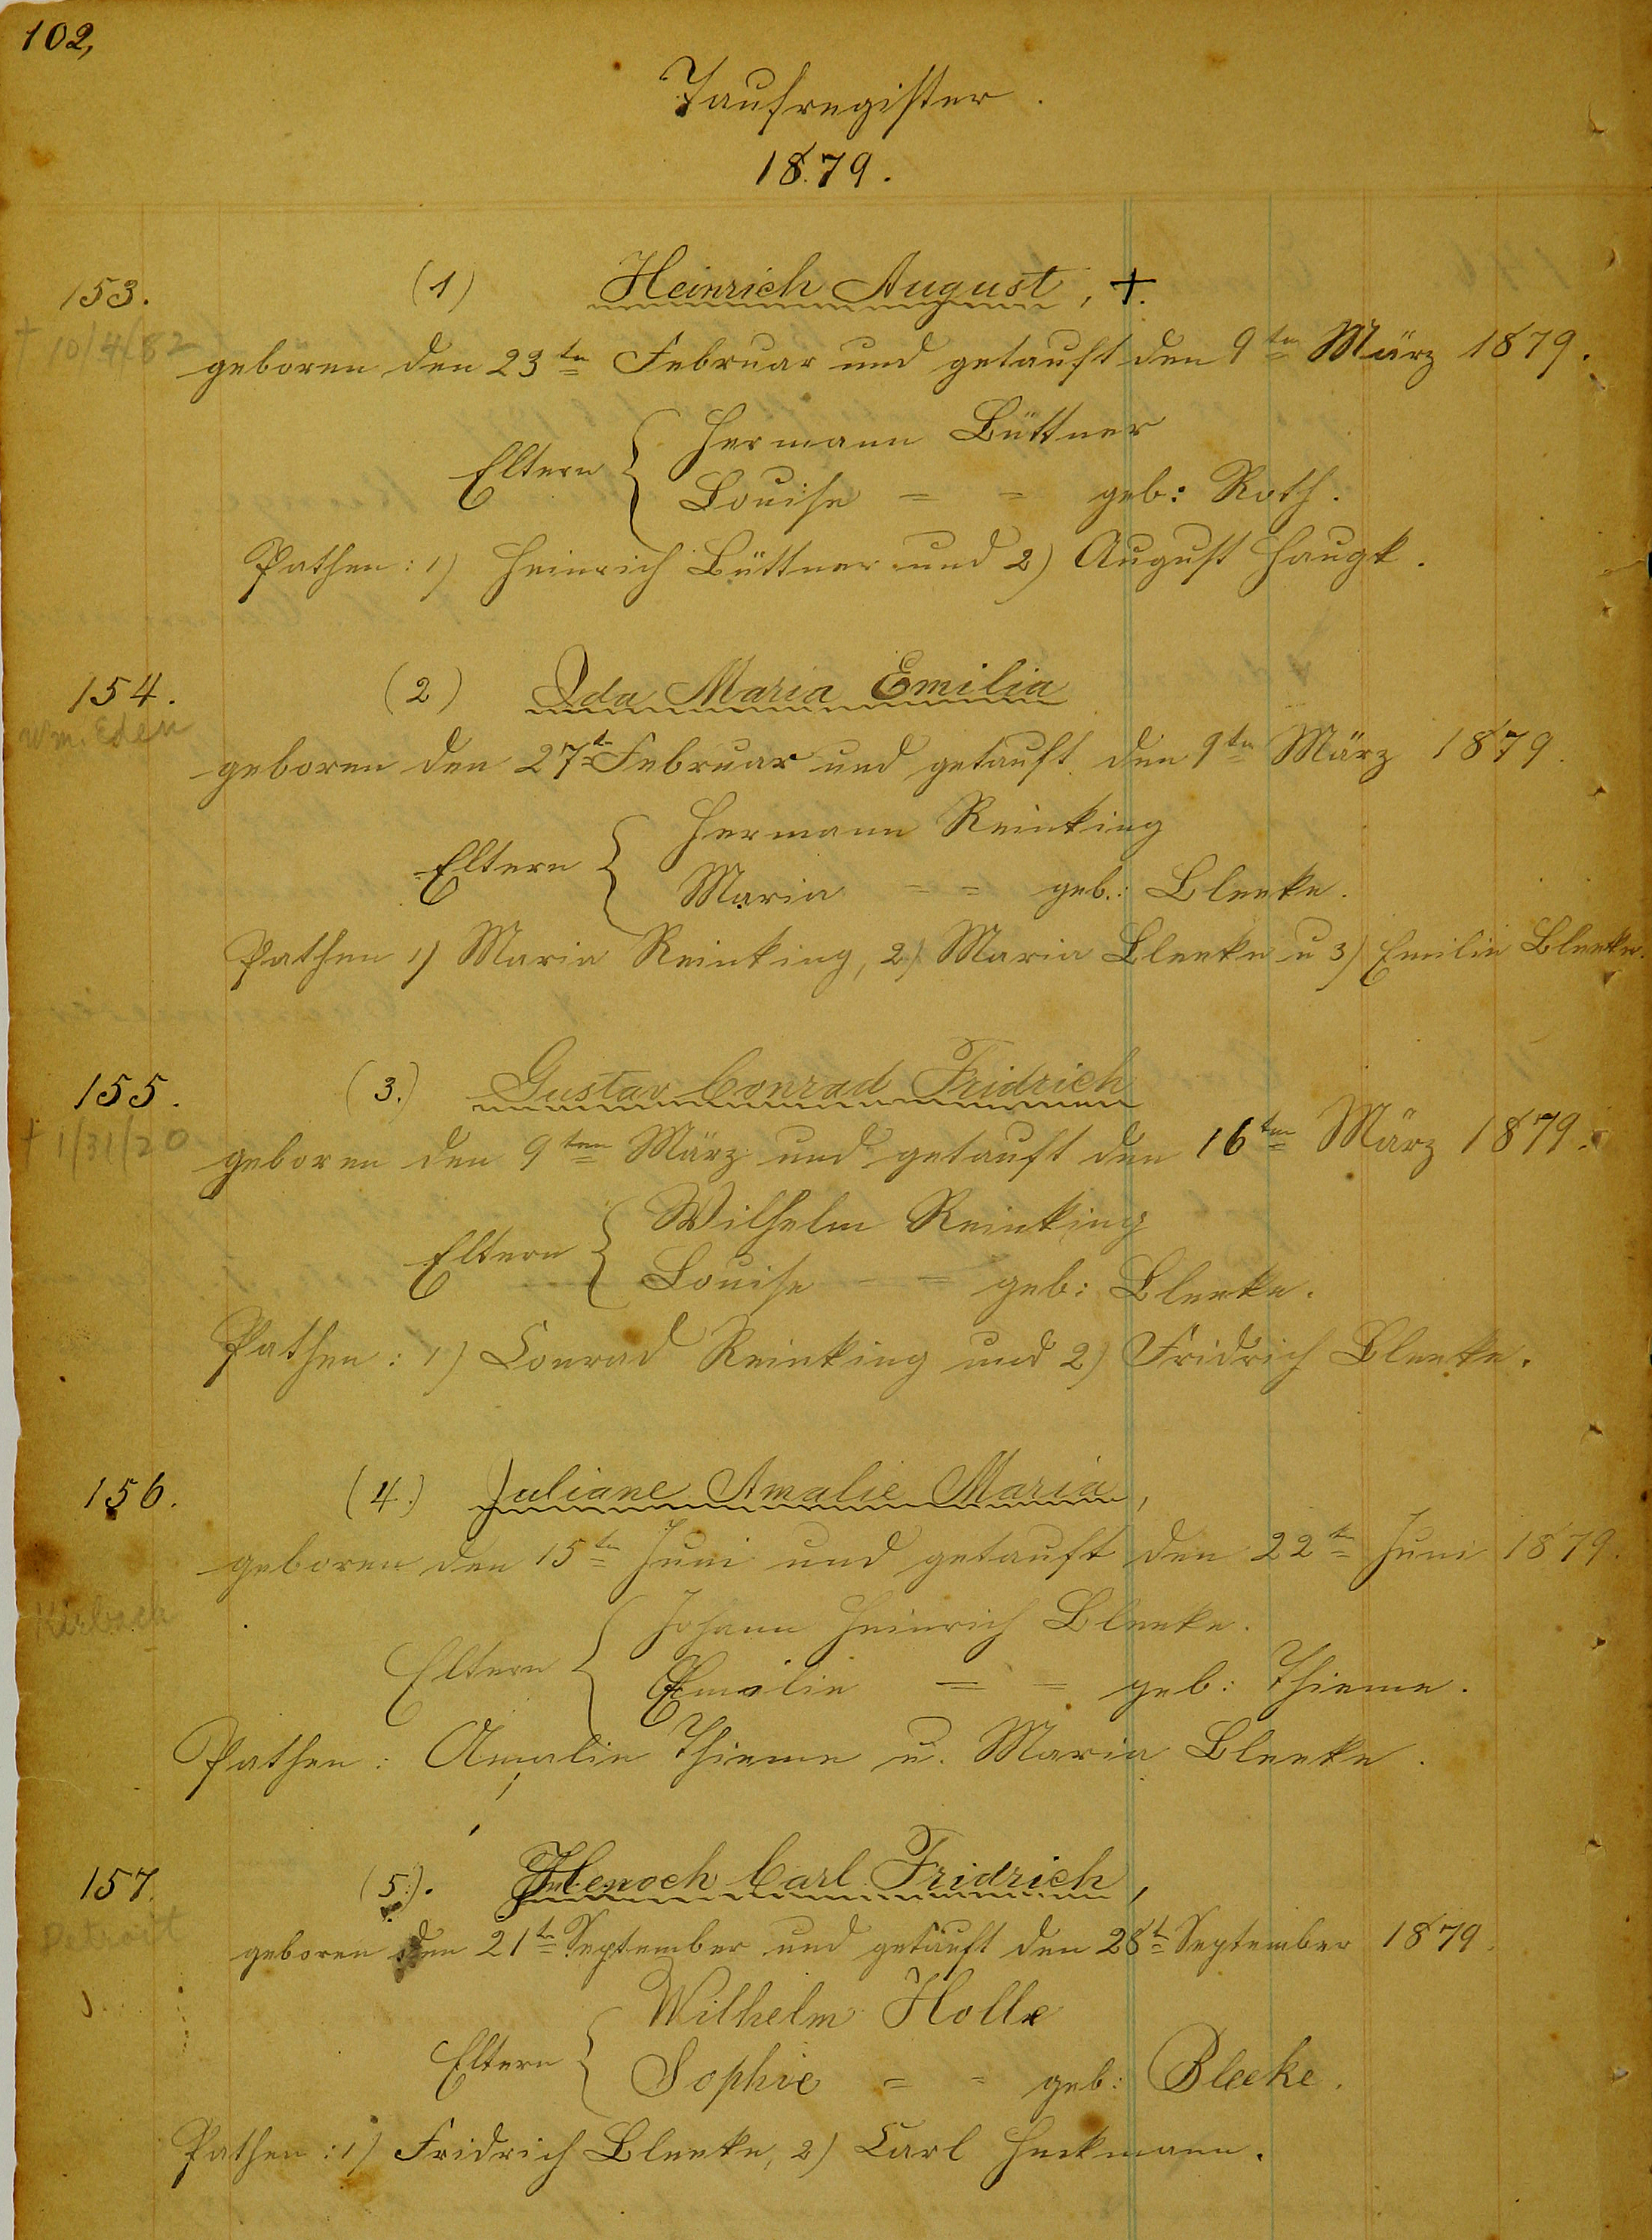 102,
Taufregister.
1879.
153. (1) Heinrich August, +.
+ 10/4/82
geboren den 23ten Februar und getauft den 9ten März 1879.
Hermann Büttner
Eltern {
Louise = = geb: Roth.
Pathen: 1) Heinrich Büttner und 2) August Haugk.
154. (2) Ida Maria Emilia
Wm. Eden
geboren den 27t Februar und getauft den 9ten März 1879.
Hermann Reinking
Eltern {
Maria = = geb.: Bleeke.
Pathen 1) Maria Reinking, 2) Maria Bleeke u 3) Emilie Bleeke.
155. (3.) Gustav Conrad Fridrich
+ 1/31/20
geboren den 9ten März und getauft den 16ten März 1879.
Wilhelm Reinking
Eltern {
Louise = = geb: Bleeke.
Pathen: 1) Conrad Reinking und 2) Fridrich Bleeke.
156. (4.) Juliane Amalie Maria,
geboren den 15ten Juni und getauft den 22ten Juni 1879.
Kirbach
Johann Heinrich Bleeke.
Eltern {
= = geb: Thieme.
Pathen: Amalie Thieme u. Maria Bleeke.
157. (5.). Henoch Carl Fridrich,
Detroit
geboren den 21ten September und getauft den 28t September 1879.
Wilhelm Holle
Eltern {
Sophie = = geb: Bleeke.
Pathen: 1) Fridrich Bleeke, 2) Carl Heckmann.